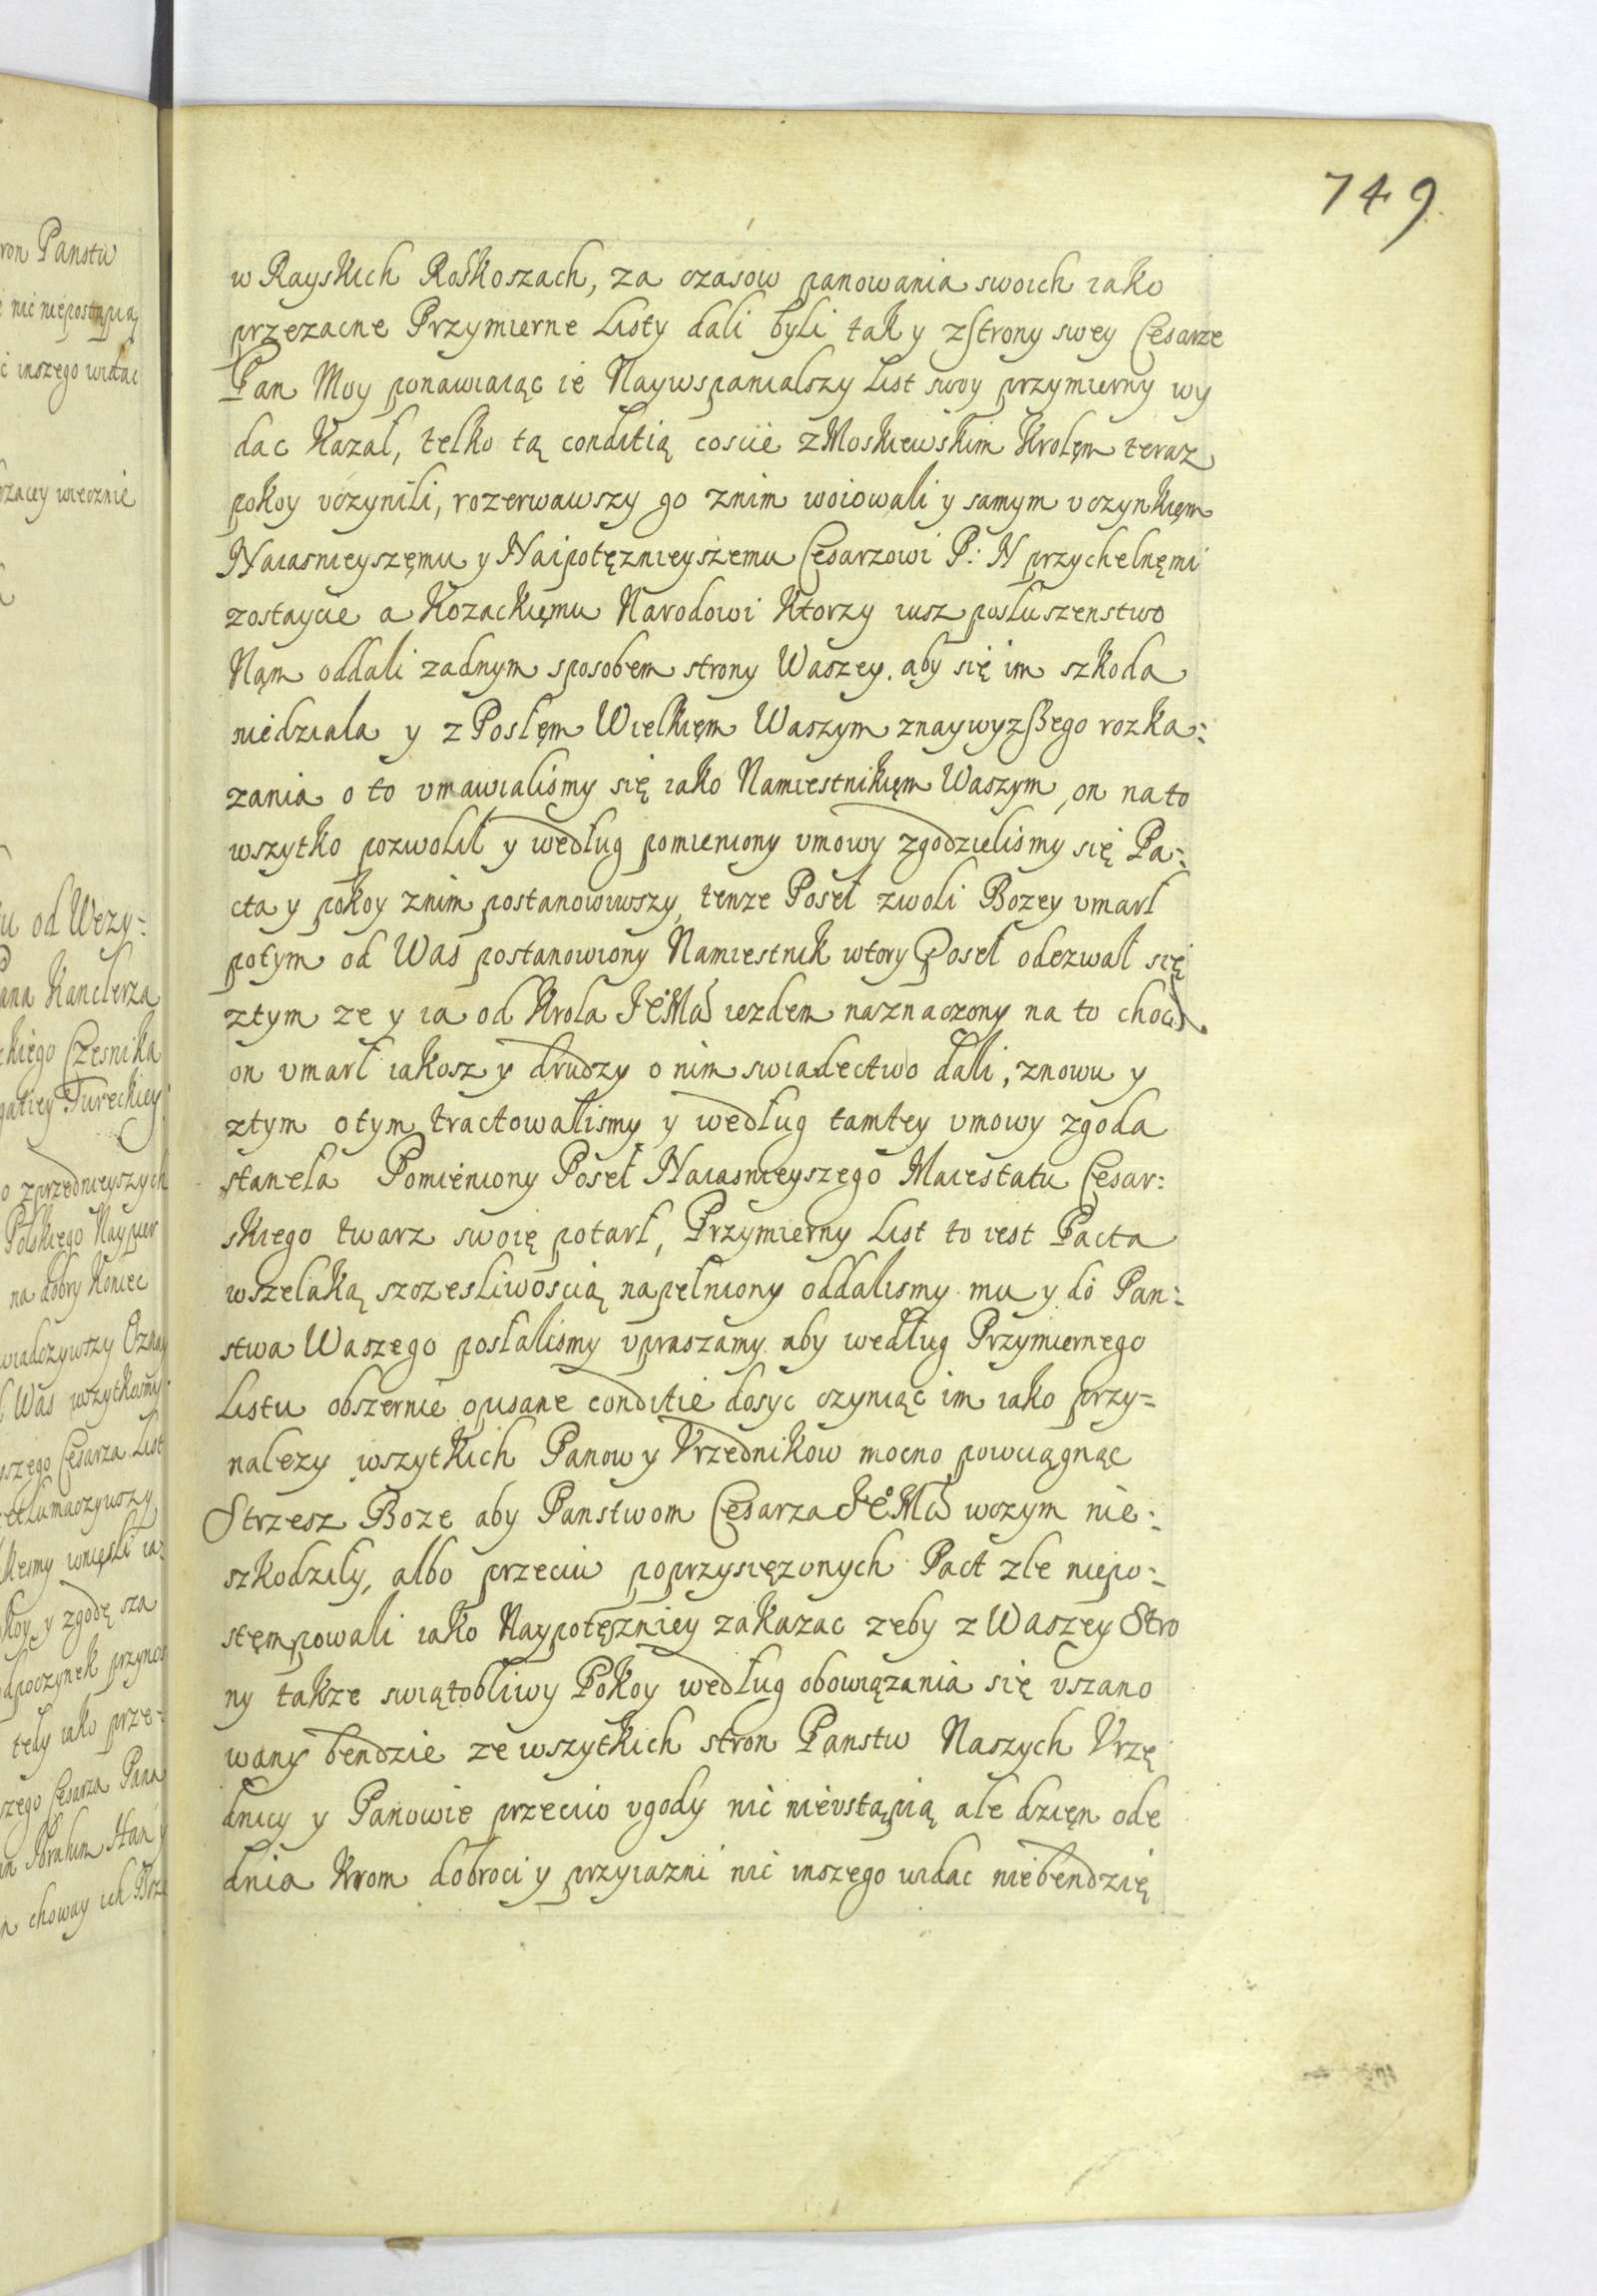 749
w Rayskich Roskoszach, za czasow panowania swoich iako
przezacne Przymierne Listy dali byli tak y zstrony swey Cesarze
Pan Moy ponawiaiąc ie Naywspanialszy List swoy przymierny wy
dac Kazał, telko tą conditią coscie z Moskiewskim Krolęm teraz
pokoy vczynili, rozerwawszy go znim woiowali y samym vczynkięm
Naiasnieyszęmu y Naipotęznieyszemu Cesarzowi P: N przychelnęmi
zostaycie a Kozackięmu Narodowi Ktorzy iusz posłuszenstwo
Nąm oddali zadnym sposobem strony Waszey. aby się im szkoda
niedziała y z Posłęm Wielkięm Waszym znaywyzszego rozka:
zania o to vmawialismy się iako Namiestnikięm Waszym, on na to
wszytko pozwolił y według pomieniony vmowy zgodzielismy się Pa:
cta y pokoy znim postanowiwszy, tenze Poseł zwoli Bozey vmarł
potym od Was postanowiony Namiestnik wtory Poseł odezwał się
ztym ze y ia od Krola JeMci iezdem naznaczony na to choc
on vmarł iakosz y drudzy o nim swiadectwo dali, znowu y
ztym otym tractowalismy y według tamtey vmowy zgoda
staneła Pomieniony Poseł Naiasnieyszego Maiestatu Cesar:
skiego twarz swoię potarł, Przymierny List to iest Pacta
wszelaką szczesliwoscią napełniony oddalismy mu y do Pan:
stwa Waszego posłalismy vpraszamy aby według Przymiernego
Listu obszernie opisane conditie dosyc czyniąc im iako przy=
nalezy wszytkich Panow y Vrzednikow mocno powciągnąc
Strzesz Boze aby Panstwom Cesarza JeMci wczym nie:
szkodziły, albo przeciw poprzysięzonych Pact zle niepo:
stęmpowali iako Naypotęszniey zakazac zeby z Waszey Stro
ny takze swiątobliwy Pokoy według obowiązania się vszano
wany bendzie ze wszytkich stron Panstw Naszych Vrzę
dnicy y Panowie przeciw vgody nic nievstąpią ale dzięn ode
dnia Krom dobroci y przyiazni nic inszego widac niebendzię